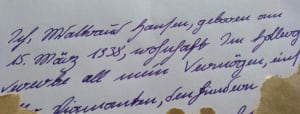 Ich, Waltraud Hansen, geboren am
15. März 1938, wohnhaft Im
vererbe all mein Vermögen, und
Diamanten, den